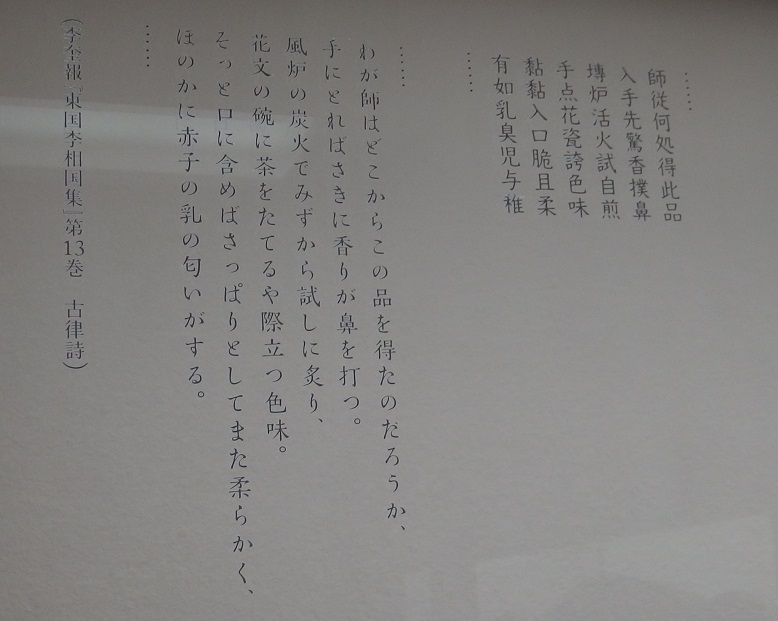 ……
師従何処得此品
入手先驚香撲鼻
塼炉活火試自煎
手点花瓷誇色味
黏黏入口脆且柔
有如乳臭児与稚
……
……
わが師はどこからこの品を得たのだろうか、
手にとればさきに香りが鼻を打つ。
風炉の炭火でみずから試しに炙り、
花文の碗に茶をたてるや際立つ色味。
そっと口に含めばさっぱりとしてまた柔らかく、
ほのかに赤子の乳の匂いがする。
……
(李奎報『東国李相国集』第13巻　古律詩)